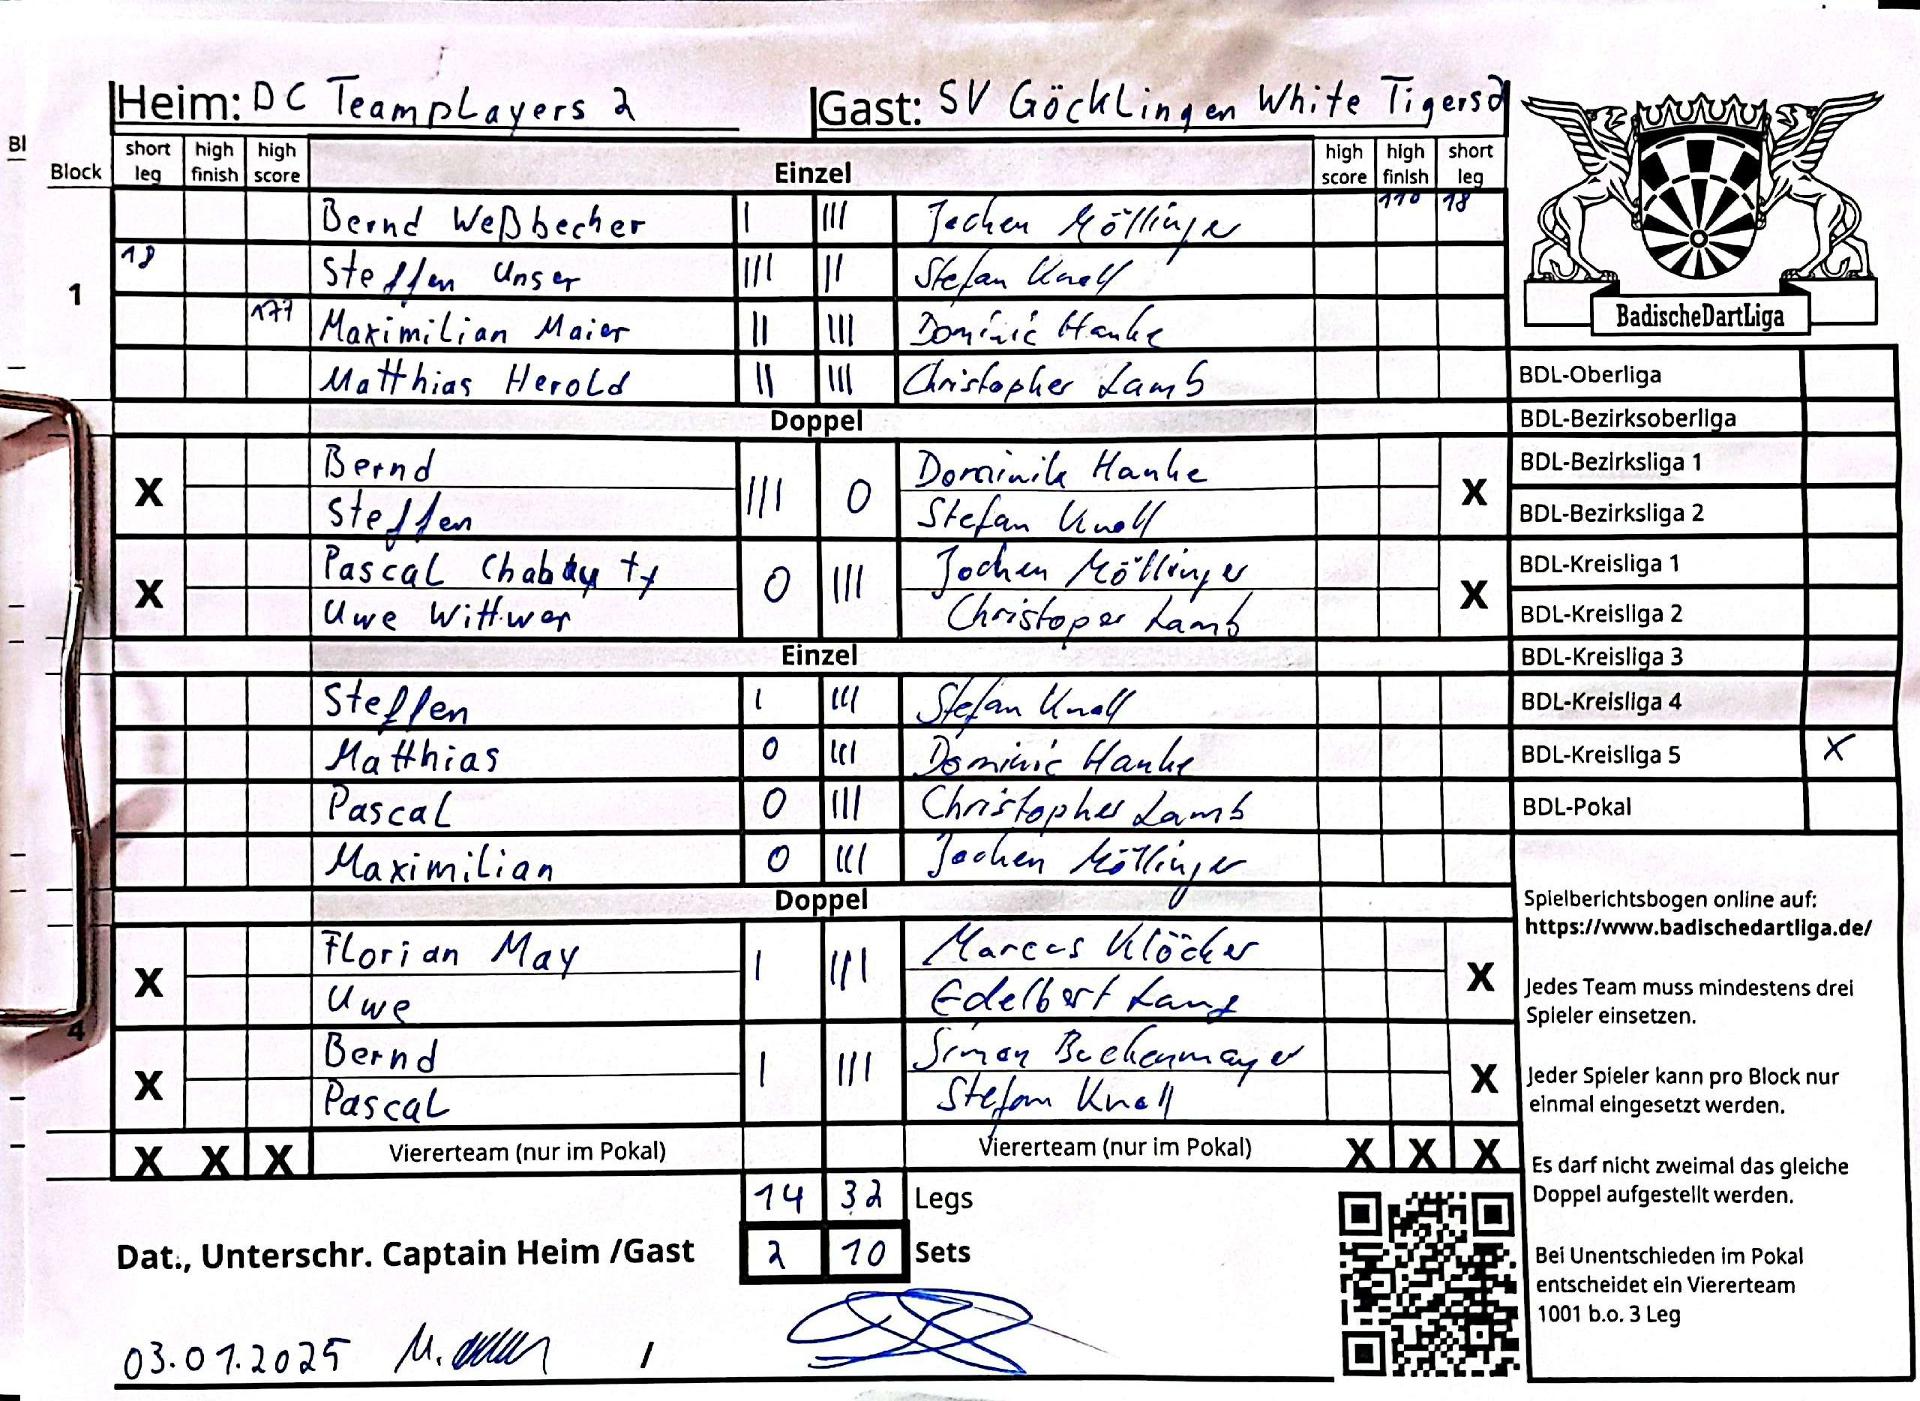 Heim: DC Teamplayers 2 Gast: SV Göcklingen White Tigers 2
Bl
Block short leg high finish high score Einzel high score high finish short leg
Bernd Weßbecher I III Jochen Möllinger 110 18
18 Steffen Unser III II Stefan Knoll
1
177 Maximilian Maier II III Dominic Hanke
Matthias Herold II III Christopher Lamb
Doppel
X Bernd III 0 Dominik Hanke X
Steffen Stefan Knoll
X Pascal 0 III Jochen Möllinger X
Uwe Wittwer Christoper Lamb
Einzel
Steffen I III Stefan Knoll
Matthias 0 III Dominic Hanke
Pascal 0 III Christopher Lamb
Maximilian 0 III Jochen Möllinger
Doppel
X Florian May I III Marcus Klöcker X
Uwe Edelbert Lang
4
X Bernd I III Simon X
Pascal Stefan Knoll
X X X Viererteam (nur im Pokal) Viererteam (nur im Pokal) X X X
14 32 Legs
2 10 Sets
Dat., Unterschr. Captain Heim /Gast
03.01.2025 M. /
BadischeDartLiga
BDL-Oberliga
BDL-Bezirksoberliga
BDL-Bezirksliga 1
BDL-Bezirksliga 2
BDL-Kreisliga 1
BDL-Kreisliga 2
BDL-Kreisliga 3
BDL-Kreisliga 4
BDL-Kreisliga 5 X
BDL-Pokal
Spielberichtsbogen online auf:
https://www.badischedartliga.de/
Jedes Team muss mindestens drei
Spieler einsetzen.
Jeder Spieler kann pro Block nur
einmal eingesetzt werden.
Es darf nicht zweimal das gleiche
Doppel aufgestellt werden.
Bei Unentschieden im Pokal
entscheidet ein Viererteam
1001 b.o. 3 Leg